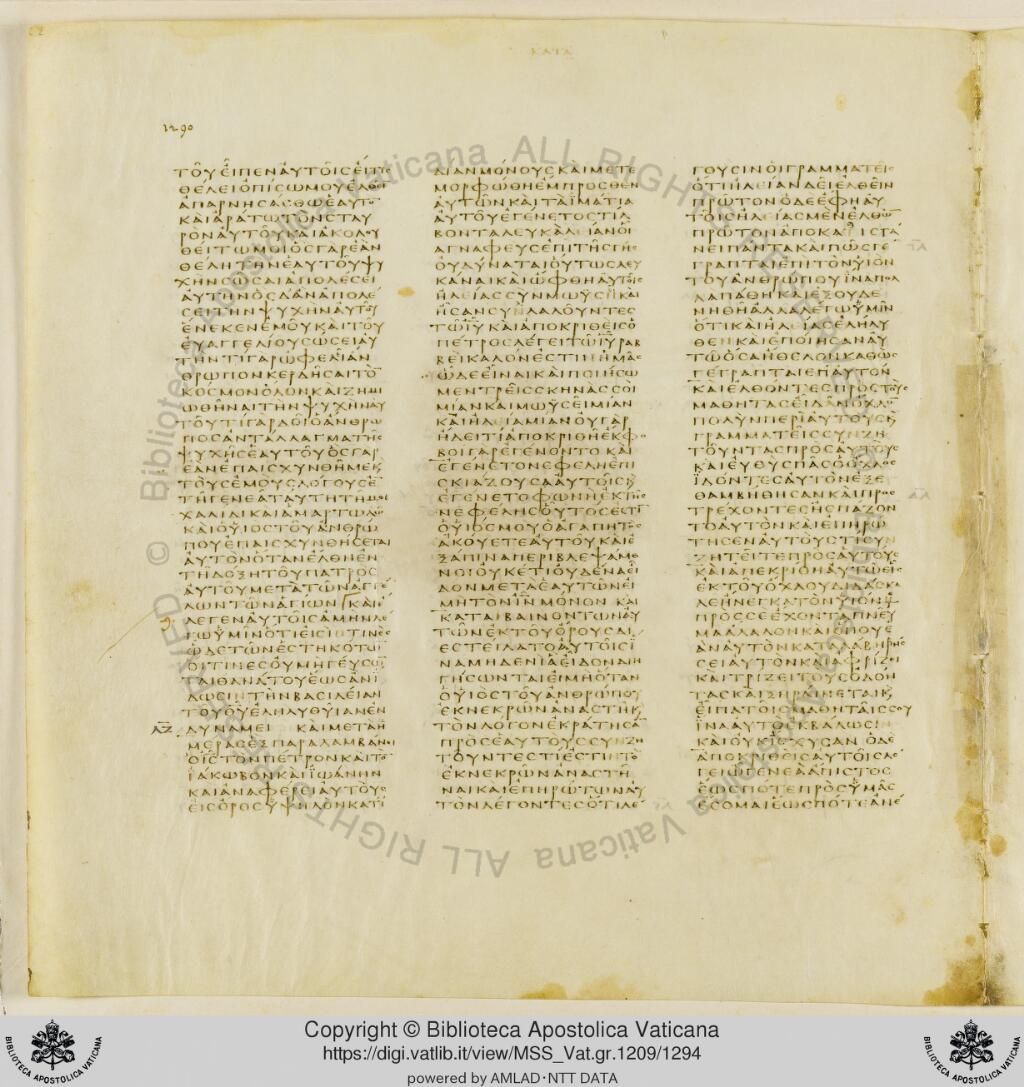 ΚΑΤΑ
1290
ΤΟΥ ΕΙΠΕΝ ΑΥΤΟΙΣ ΕΙΤΙΣ
ΘΕΛΕΙ ΟΠΙΣΩ ΜΟΥ ΕΛΘΕΙ
ΑΠΑΡΝΗΣΑΣΘΩ ΕΑΥΤΟ
ΚΑΙ ΑΡΑΤΩ ΤΟΝ ΣΤΑΥ
ΡΟΝ ΑΥΤΟΥ ΚΑΙ ΑΚΟΛΟΥ
ΘΕΙΤΩ ΜΟΙ ΟΣ ΓΑΡ ΕΑΝ
ΘΕΛΗ ΤΗΝ ΕΑΥΤΟΥ ΨΥ
ΧΗΝ ΣΩΣΑΙ ΑΠΟΛΕΣΕΙ
ΑΥΤΗΝ ΟΣ Δ ΑΝ ΑΠΟΛΕ
ΣΕΙ ΤΗΝ ΨΥΧΗΝ ΑΥΤΟΥ
ΕΝΕΚΕΝ ΕΜΟΥ ΚΑΙ ΤΟΥ
ΕΥΑΓΓΕΛΙΟΥ ΣΩΣΕΙ ΑΥ
ΤΗΝ ΤΙ ΓΑΡ ΩΦΕΛΕΙ ΑΝ
ΘΡΩΠΟΝ ΚΕΡΔΗΣΑΙ ΤΟ
ΚΟΣΜΟΝ ΟΛΟΝ ΚΑΙ ΖΗΜΙ
ΩΘΗΝΑΙ ΤΗΝ ΨΥΧΗΝ ΑΥ
ΤΟΥ ΤΙ ΓΑΡ ΔΟΙ Ο ΑΝΘΡΩ
ΠΟΣ ΑΝΤΑΛΛΑΓΜΑ ΤΗΣ
ΨΥΧΗΣ ΕΑΥΤΟΥ ΟΣ ΓΑΡ
ΕΑΝ ΕΠΑΙΣΧΥΝΘΗ ΜΕ Κ
ΤΟΥΣ ΕΜΟΥΣ ΛΟΓΟΥΣ Ε
ΤΗ ΓΕΝΕΑ ΤΑΥΤΗ ΤΗ ΜΟΙ
ΧΑΛΙΔΙ ΚΑΙ ΑΜΑΡΤΩΛΩ
ΚΑΙ Ο ΥΙΟΣ ΤΟΥ ΑΝΘΡΩ
ΠΟΥ ΕΠΑΙΣΧΥΝΘΗΣΕΤΑΙ
ΑΥΤΟΝ ΟΤΑΝ ΕΛΘΗ ΕΝ
ΤΗ ΔΟΞΗ ΤΟΥ ΠΑΤΡΟΣ
ΑΥΤΟΥ ΜΕΤΑ ΤΩΝ ΑΓΓΕ
ΛΩΝ ΤΩΝ ΑΓΙΩΝ ΚΑΙ Ε
ΛΕΓΕΝ ΑΥΤΟΙΣ ΑΜΗΝ ΛΕ
ΓΩ ΥΜΙΝ ΟΤΙ ΕΙΣΙΝ ΤΙΝΕΣ
ΩΔΕ ΤΩΝ ΕΣΤΗΚΟΤΩ
ΟΙΤΙΝΕΣ ΟΥ ΜΗ ΓΕΥΣΩ
ΤΑΙ ΘΑΝΑΤΟΥ ΕΩΣ ΑΝ Ι
ΔΩΣΙΝ ΤΗΝ ΒΑΣΙΛΕΙΑΝ
ΤΟΥ ΘΥ ΕΛΗΛΥΘΥΙΑΝ ΕΝ
ΛΖ ΔΥΝΑΜΕΙ ΚΑΙ ΜΕΤΑ Η
ΜΕΡΑΣ ΕΞ ΠΑΡΑΛΑΜΒΑΝΕΙ
Ο ΙΣ ΤΟΝ ΠΕΤΡΟΝ ΚΑΙ ΤΟ
ΙΑΚΩΒΟΝ ΚΑΙ ΙΩΑΝΗΝ
ΚΑΙ ΑΝΑΦΕΡΕΙ ΑΥΤΟΥΣ
ΕΙΣ ΟΡΟΣ ΥΨΗΛΟΝ ΚΑΤ Ι
ΔΙΑΝ ΜΟΝΟΥΣ ΚΑΙ ΜΕΤΕ
ΜΟΡΦΩΘΗ ΕΜΠΡΟΣΘΕΝ
ΑΥΤΩΝ ΚΑΙ ΤΑ ΙΜΑΤΙΑ
ΑΥΤΟΥ ΕΓΕΝΕΤΟ ΣΤΙΛ
ΒΟΝΤΑ ΛΕΥΚΑ ΛΕΙΑΝ ΟΙ
Α ΓΝΑΦΕΥΣ ΕΠΙ ΤΗΣ ΓΗΣ
ΟΥ ΔΥΝΑΤΑΙ ΟΥΤΩΣ ΛΕΥ
ΚΑΝΑΙ ΚΑΙ ΩΦΘΗ ΑΥΤΟΙΣ
ΗΛΕΙΑΣ ΣΥΝ ΜΩΥΣΗ ΚΑΙ
ΗΣΑΝ ΣΥΝΛΑΛΟΥΝΤΕΣ
ΤΩ ΙΥ ΚΑΙ ΑΠΟΚΡΙΘΕΙΣ Ο
ΠΕΤΡΟΣ ΛΕΓΕΙ ΤΩ ΙΥ ΡΑΒ
ΒΕΙ ΚΑΛΟΝ ΕΣΤΙΝ ΗΜΑΣ
ΩΔΕ ΕΙΝΑΙ ΚΑΙ ΠΟΙΗΣΩ
ΜΕΝ ΤΡΕΙΣ ΣΚΗΝΑΣ ΣΟΙ
ΜΙΑΝ ΚΑΙ ΜΩΥΣΕΙ ΜΙΑΝ
ΚΑΙ ΗΛΕΙΑ ΜΙΑΝ ΟΥ ΓΑΡ
ΗΔΕΙ ΤΙ ΑΠΟΚΡΙΘΗ ΕΚΦΟ
ΒΟΙ ΓΑΡ ΕΓΕΝΟΝΤΟ ΚΑΙ
ΕΓΕΝΕΤΟ ΝΕΦΕΛΗ ΕΠΙ
ΣΚΙΑΖΟΥΣΑ ΑΥΤΟΙΣ Κ
ΕΓΕΝΕΤΟ ΦΩΝΗ ΕΚ ΤΗΣ
ΝΕΦΕΛΗΣ ΟΥΤΟΣ ΕΣΤΙ
Ο ΥΙΟΣ ΜΟΥ Ο ΑΓΑΠΗΤΟΣ
ΑΚΟΥΕΤΕ ΑΥΤΟΥ ΚΑΙ Ε
ΞΑΠΙΝΑ ΠΕΡΙΒΛΕΨΑΜΕ
ΝΟΙ ΟΥΚΕΤΙ ΟΥΔΕΝΑ ΕΙ
ΔΟΝ ΜΕΤΑ ΕΑΥΤΩΝ ΕΙ
ΜΗ ΤΟΝ ΙΝ ΜΟΝΟΝ ΚΑΙ
ΚΑΤΑΒΑΙΝΟΝΤΩΝ ΑΥ
ΤΩΝ ΕΚ ΤΟΥ ΟΡΟΥΣ ΔΙ
ΕΣΤΕΙΛΑΤΟ ΑΥΤΟΙΣ Ι
ΝΑ ΜΗΔΕΝΙ Α ΕΙΔΟΝ ΔΙΗ
ΓΗΣΩΝΤΑΙ ΕΙ ΜΗ ΟΤΑΝ
Ο ΥΙΟΣ ΤΟΥ ΑΝΘΡΩΠΟΥ
ΕΚ ΝΕΚΡΩΝ ΑΝΑΣΤΗ Κ
ΤΟΝ ΛΟΓΟΝ ΕΚΡΑΤΗΣΑ
ΠΡΟΣ ΕΑΥΤΟΥΣ ΣΥΝΖΗ
ΤΟΥΝΤΕΣ ΤΙ ΕΣΤΙΝ ΤΟ
ΕΚ ΝΕΚΡΩΝ ΑΝΑΣΤΗ
ΝΑΙ ΚΑΙ ΕΠΗΡΩΤΩΝ ΑΥ
ΤΟΝ ΛΕΓΟΝΤΕΣ ΟΤΙ ΛΕ
ΓΟΥΣΙΝ ΟΙ ΓΡΑΜΜΑΤΕΙΣ
ΟΤΙ ΗΛΕΙΑΝ ΔΕΙ ΕΛΘΕΙΝ
ΠΡΩΤΟΝ Ο ΔΕ ΕΦΗ ΑΥ
ΤΟΙΣ ΗΛΕΙΑΣ ΜΕΝ ΕΛΘΩ
ΠΡΩΤΟΝ ΑΠΟΚΑΤΙΣΤΑ
ΝΕΙ ΠΑΝΤΑ ΚΑΙ ΠΩΣ ΓΕ
ΓΡΑΠΤΑΙ ΕΠΙ ΤΟΝ ΥΙΟΝ
ΤΟΥ ΑΝΘΡΩΠΟΥ ΙΝΑ ΠΟΛ
ΛΑ ΠΑΘΗ ΚΑΙ ΕΞΟΥΔΕ
ΝΗΘΗ ΑΛΛΑ ΛΕΓΩ ΥΜΙΝ
ΟΤΙ ΚΑΙ ΗΛΕΙΑΣ ΕΛΗΛΥ
ΘΕΝ ΚΑΙ ΕΠΟΙΗΣΑΝ ΑΥ
ΤΩ ΟΣΑ ΗΘΕΛΟΝ ΚΑΘΩΣ
ΓΕΓΡΑΠΤΑΙ ΕΠ ΑΥΤΟΝ
ΚΑΙ ΕΛΘΟΝΤΕΣ ΠΡΟΣ ΤΟΥΣ
ΜΑΘΗΤΑΣ ΕΙΔΑΝ ΟΧΛΟ
ΠΟΛΥΝ ΠΕΡΙ ΑΥΤΟΥΣ Κ
ΓΡΑΜΜΑΤΕΙΣ ΣΥΝΖΗ
ΤΟΥΝΤΑΣ ΠΡΟΣ ΑΥΤΟΥΣ
ΚΑΙ ΕΥΘΥΣ ΠΑΣ Ο ΟΧΛΟΣ
ΙΔΟΝΤΕΣ ΑΥΤΟΝ ΕΞΕ
ΘΑΜΒΗΘΗΣΑΝ ΚΑΙ ΠΡΟΣ
ΤΡΕΧΟΝΤΕΣ ΗΣΠΑΖΟΝ
ΤΟ ΑΥΤΟΝ ΚΑΙ ΕΠΗΡΩ
ΤΗΣΕΝ ΑΥΤΟΥΣ ΤΙ ΣΥΝ
ΖΗΤΕΙΤΕ ΠΡΟΣ ΑΥΤΟΥΣ
ΚΑΙ ΑΠΕΚΡΙΘΗ ΑΥΤΩ ΕΙΣ
ΕΚ ΤΟΥ ΟΧΛΟΥ ΔΙΔΑΣΚΑ
ΛΕ ΗΝΕΓΚΑ ΤΟΝ ΥΙΟΝ ΜΟΥ
ΠΡΟΣ ΣΕ ΕΧΟΝΤΑ ΠΝΕΥ
ΜΑ ΑΛΑΛΟΝ ΚΑΙ ΟΠΟΥ Ε
ΑΝ ΑΥΤΟΝ ΚΑΤΑΛΑΒΗ ΡΗΣ
ΣΕΙ ΑΥΤΟΝ ΚΑΙ ΑΦΡΙΖΕΙ
ΚΑΙ ΤΡΙΖΕΙ ΤΟΥΣ ΟΔΟΝ
ΤΑΣ ΚΑΙ ΞΗΡΑΙΝΕΤΑΙ Κ
ΕΙΠΑ ΤΟΙΣ ΜΑΘΗΤΑΙΣ ΣΟΥ
ΙΝΑ ΑΥΤΟ ΕΚΒΑΛΩΣΙΝ
ΚΑΙ ΟΥΚ ΙΣΧΥΣΑΝ Ο ΔΕ
ΑΠΟΚΡΙΘΕΙΣ ΑΥΤΟΙΣ ΛΕ
ΓΕΙ Ω ΓΕΝΕΑ ΑΠΙΣΤΟΣ
ΕΩΣ ΠΟΤΕ ΠΡΟΣ ΥΜΑΣ
ΕΣΟΜΑΙ ΕΩΣ ΠΟΤΕ ΑΝΕ
Copyright © Biblioteca Apostolica Vaticana
https://digi.vatlib.it/view/MSS_Vat.gr.1209/1294
powered by AMLAD·NTT DATA
BIBLIOTECA APOSTOLICA VATICANA
BIBLIOTECA APOSTOLICA VATICANA